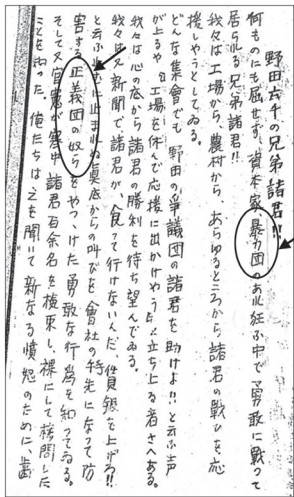 野田六千の兄弟諸君!!
何ものにも屈せず、資本家、暴力団のあれ狂ふ中で勇敢に戰って
居られる兄弟諸君!!
我々は工場から、農村から、あらゆるところから諸君の戰ひを応
援しやうとしてゐる。
どんな集會でも 野田の爭議団の諸君を助けよ!!、と云ふ声
が上るや、工場を休んで応援に出かけやうだと立ち上る者さへある。
我々は心の底から諸君の勝利を待ち望んでゐる。
我々は又新聞で諸君が、食って行けないんだ、賃銀を上げろ!!
と云ふ止むに止まれぬ真底からの叫びを會社の手先になって防
害する正義団の奴らをやっつけた勇敢な行為を知ってゐる。
そして又官憲が寒中諸君百余名を検束し、裸にして拷問した
ことを知った。俺たちは之を聞いて新なる憤怒のために歯